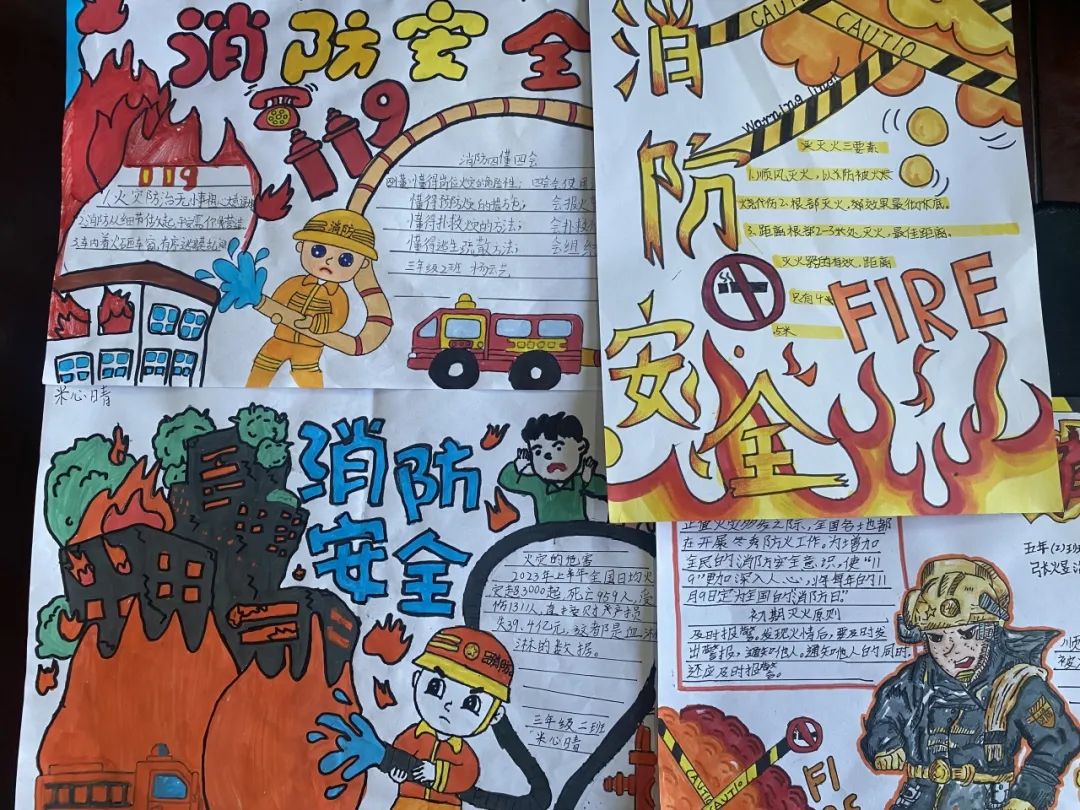 消防安全
119
119
1.火灾防治无小事
消防四懂四会
四懂:懂得岗位火灾的危险性; 四会:会使用
懂得预防火灾的措施; 会报火
懂得扑救火灾的方法; 会扑救
懂得逃生疏散方法; 会组
三年级2班
消防
米心晴
消防
安全
火灾的危害
2023年上半年全国日均火
灾起83000起,死亡959人,受
伤1311人,直接财产损
失39.4亿元,这都是
的数据。
三年级二班
米心晴
消防
消
防
安
全
CAUTIO
Warning
灭灭火三要素
1.顺风灭火,以防被火
2.根部灭火,效果最彻底。
3.距离根部2-3米处灭火,最佳距离。
灭火器的有效距离
只有4
点米
FIRE
正值火灾多发之际,全国各地都
在开展冬季防火工作。为增加
全民的消防安全意识,使“11
9”更加深入人心,将每年的11
月9日定为全国的消防日。
初期灭火原则
及时报警,发现火情后,要及时发
出警报,通知他人。通知他人的同时,
还应及时报警。
五年(2)班
CAUTION
CAUTION
FI